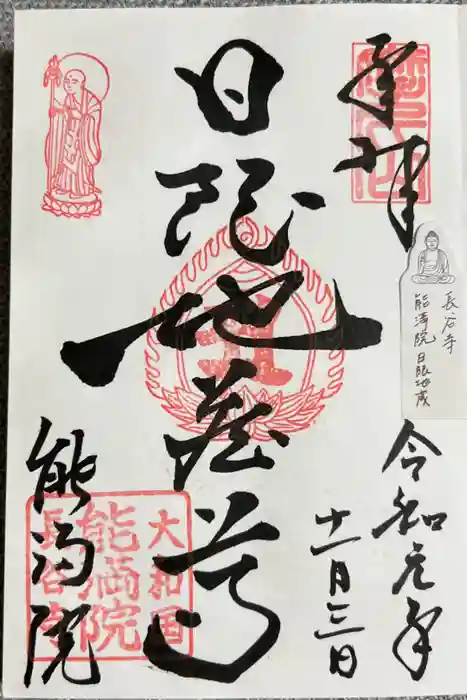 奉拝
令和元年
十一月三日
長谷寺
能満院 日限地蔵
日限地蔵尊
能満院
大和国
能満院
長谷寺